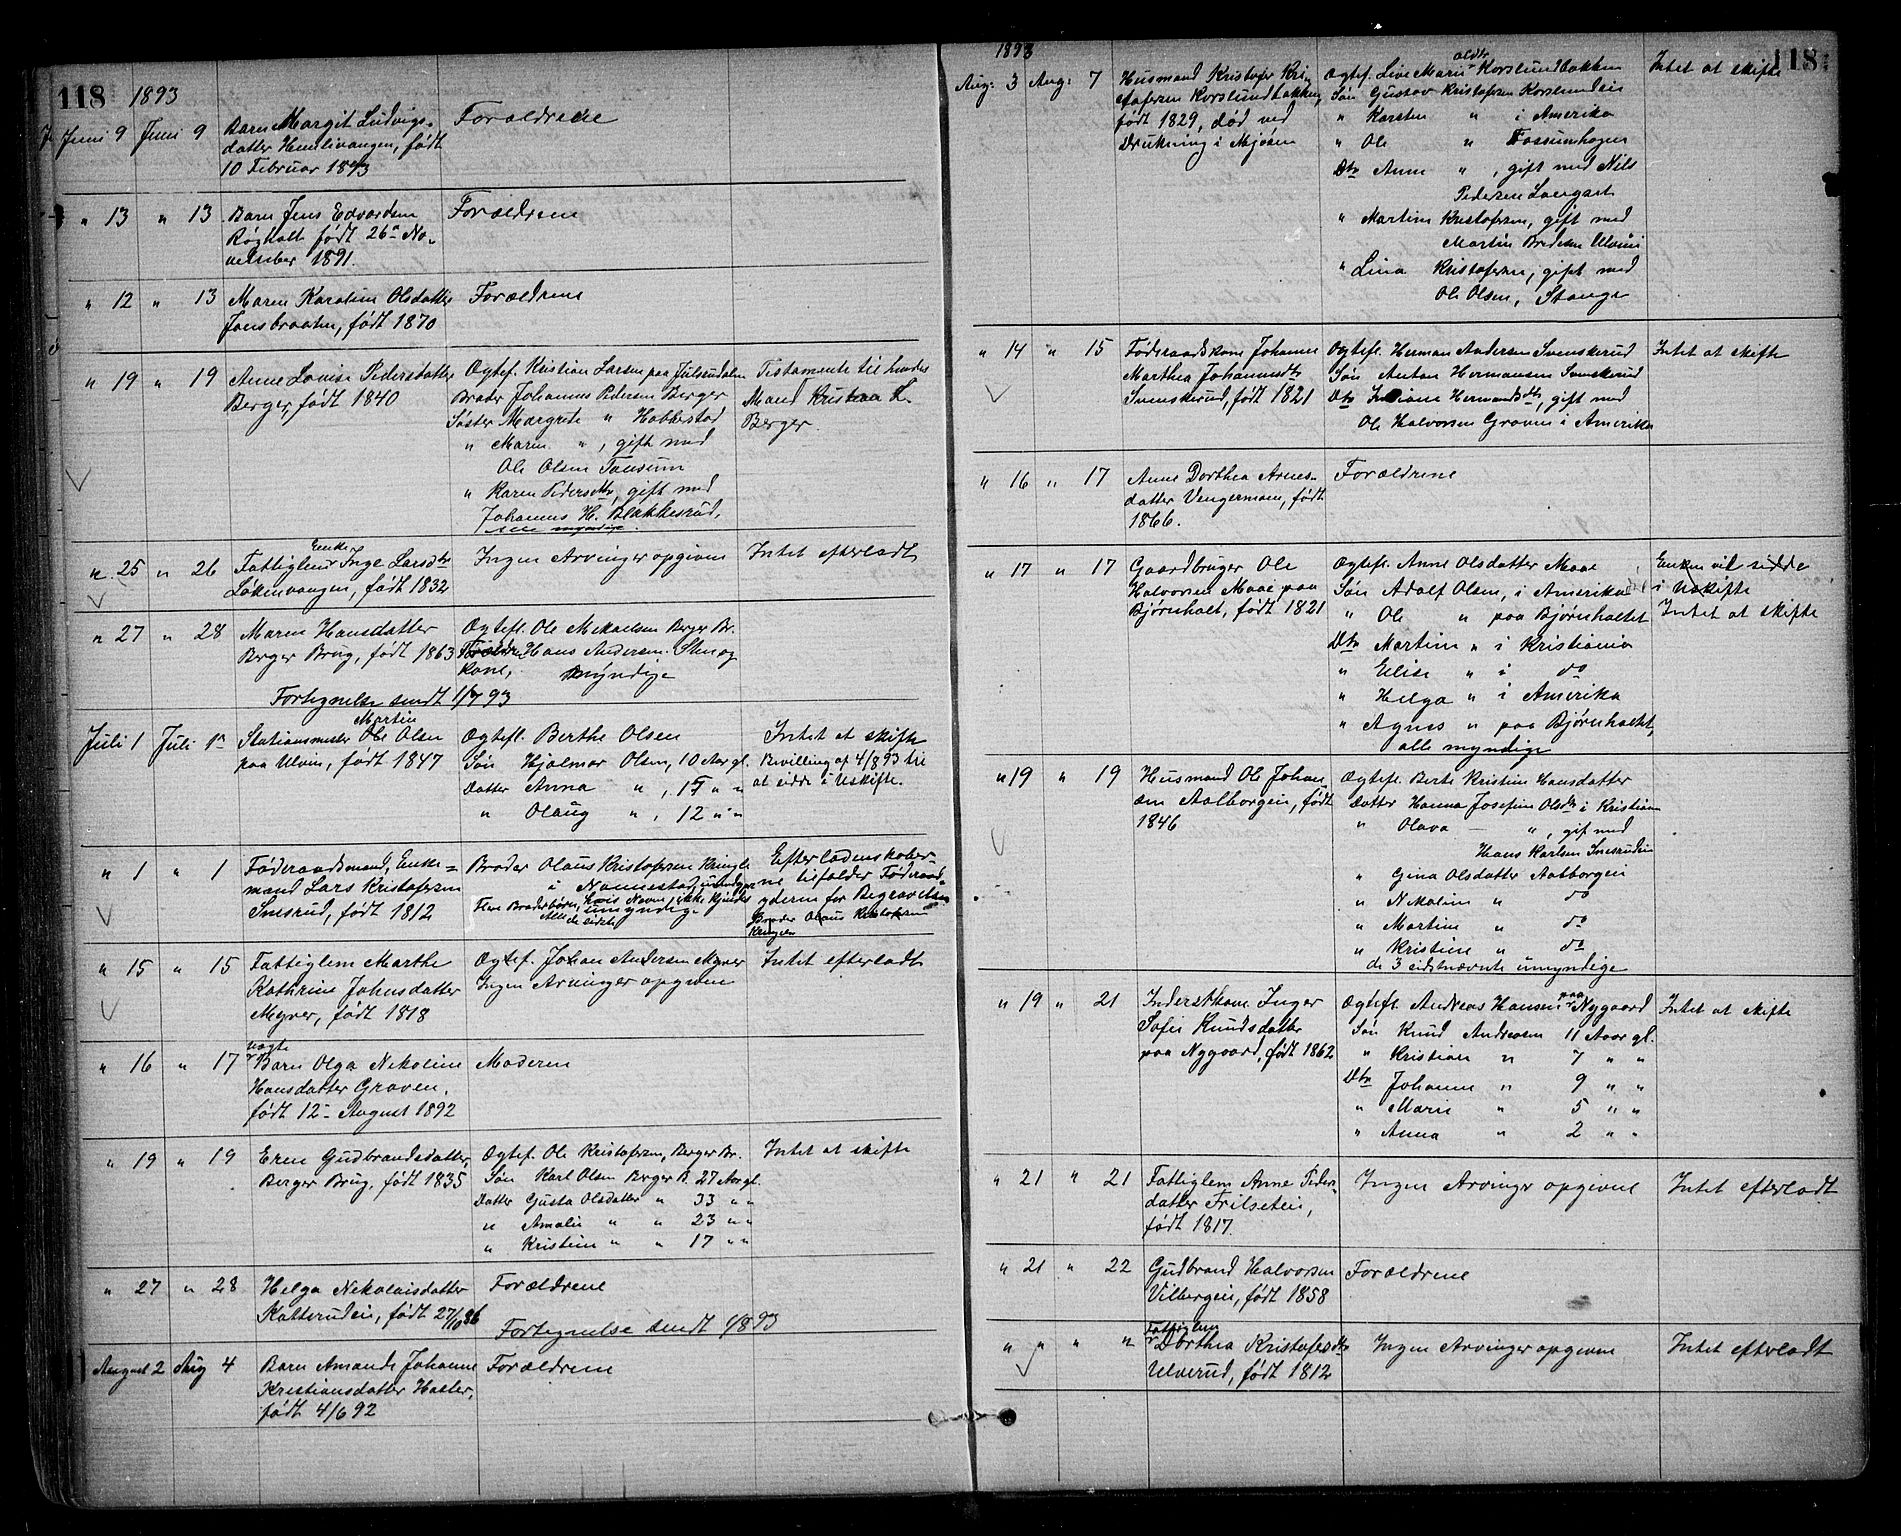 118 1893
Juni 9 Juni 9 Barn Margit Ludvigs- Forældrene
datter Hemlivangen, født
10 Februar 1893
" 13 " 13 Barn Jens Edvardsen Forældrene
Røgholt født 26de No-
vember 1891.
" 12 " 13 Maren Karoline Olsdatter Forældrene
Jonsbraaten, født 1870
" 19 " 19 Anne Lovise Pedersdatter Ægtef. Kristian Larsen paa Julsrudalen Testamente til hendes
Berger, født 1840 Broder Johannes Pedersen Berger Mand Kristian L.
Søster Margrete " Hobbelstad Berger.
" Maren " , gift med
Ole Olsen Tansum
" Karen Pedersdtr, gift med
Johannes H. Blakkesrud,
alle myndige.
" 25 " 26 Fattiglem Enke Inge Larsdtr Ingen Arvinger opgiven Intet efterladt
Løkenvangen, født 1832
" 27 " 28 Maren Hansdatter Ægtefl. Ole Mikaelsen Berger Br.
Berger Brug, født 1863 Forældre Hans Andersen Sten og
Kone, myndige
Fortegnelse sendt 1/7 93
Juli 1 Juli 1 Stationsmester Ole Martin Olsen Ægtefl. Berthe Olsen Intet at skifte
paa Ulven, født 1847 Søn Hjalmar Olsen, 10 Aar gl. Bevilling af 4/8 93 til
Datter Anna " , 15 " " at sidde i Uskifte.
" Olaug " , 12 " "
" 1 " 1 Føderaadsmand, Enke- Broder Olaus Kristofersen Kringle Efterladenskaber-
mand Lars Kristofersen i Nannestad, umyndig ne tilfalder Føderaad-
Smsrud, født 1812 Flere Broderbørn, hvis Navne ikke kjendes yderen for Begravelsen
Alle de sidste umyndige Broder Olaus Kristofersen
Kringlen
" 15 " 15 Fattiglem Marthe Ægtef. Johan Andersen Myrer Intet efterladt
Kathrine Johnsdatter Ingen Arvinger opgiven
Myrer, født 1818
" 16 " 17 uægte Barn Olga Nikoline Moderen
Hansdatter Graven,
født 12te August 1892
" 19 " 19 Eren Gudbrandsdatter, Ægtef. Ole Kristofersen, Berger Br. Intet at skifte
Berger Brug, født 1835 Søn Karl Olsen Berger B. 27 Aar gl.
Datter Gusta Olsdatter " 33 " "
" Amalie " " 23 " "
" Kristine " " 17 " "
" 27 " 28 Helga Nikolaisdatter Forældrene
Katterudeie, født 27/10 86
Fortegnelse sendt 1/8 93
August 2 Aug 4 Barn Amanda Johanne Forældrene
Kristiansdatter Hasler,
født 4/6 92
1893 118
Aug: 3 Aug: 7 Husmand Kristofer Kri- Ægtef. Live Marie Olsdtr Korslundbakken Intet at skifte
stofersen Korslundbakken, Søn Gustav Kristofersen Korslundeie
født 1829, død ved " Karsten " i Amerika
Drukning i Mjøsen " Ole " Fossumhagen
Dtr Anne " , gift med Nils
Pedersen Langset
" Martine Kristofersen, gift med
Martin Bredesen Ulvin
" Lina Kristofersen, gift med
Ole Olsen, Stange
" 14 " 15 Føderaadskone Johanne Ægtefl. Herman Andersen Svenskerud Intet at skifte
Marthea Johannesdtr Søn Anton Hermansen Svenskerud
Svenskerud, født 1821 Dtr Hermandsdtr, gift med
Ole Halvorsen Graven i Amerika
" 16 " 17 Anne Dorthea Arnes- Forældrene
datter Vengermoen, født
1866.
" 17 " 17 Gaardbruger Ole Ægtefl. Anne Olsdatter Maae Enken vil sidde
Halvorsen Maae paa Søn Adolf Olsen, i Amerika i Uskifte
Bjørnholt, født 1821 " Ole " paa Bjørnholtet Intet at skifte
Dtr Martine " i Kristiania
" Elise " i do
" Helga " i Amerika
" Agnes " paa Bjørnholtet,
alle myndige
" 19 " 19 Husmand Ole Johan- Ægtefl. Berte Kristine Hansdatter
sen Aalborgeie, født Datter Hanna Josefine Olsdtr i Kristiania
1846 " Olava — " , gif med
Hans Karlsen Smsrudeie
" Gina Olsdatter Aalborgeie
" Nikoline " do
" Martine " do
" Kristine " do
de 3 sidstnævnte umyndige
" 19 " 21 Inderstkone Inger Ægtefl. Andreas Hansen paa Nygaard Intet at skifte
Sofie Knudsdatter Søn Knud Andreasen 11 Aar gl.
paa Nygaard, født 1862 " Kristian " 7 " "
Dtr Johanne " 9 " "
" Marie " 5 " "
" Anna " 2 " "
" 21 " 21 Fattiglem Anne Peder- Ingen Arvinger opgivne Intet efterladt
datter Frilseteie,
født 1817.
" 21 " 22 Gudbrand Halvorsen Forældrene
Vilbergeie, født 1858
" " " " Fattiglem Dorthea Kristofersdtr Ingen Arvinger opgivne Intet efterladt
Ulverud, født 1812